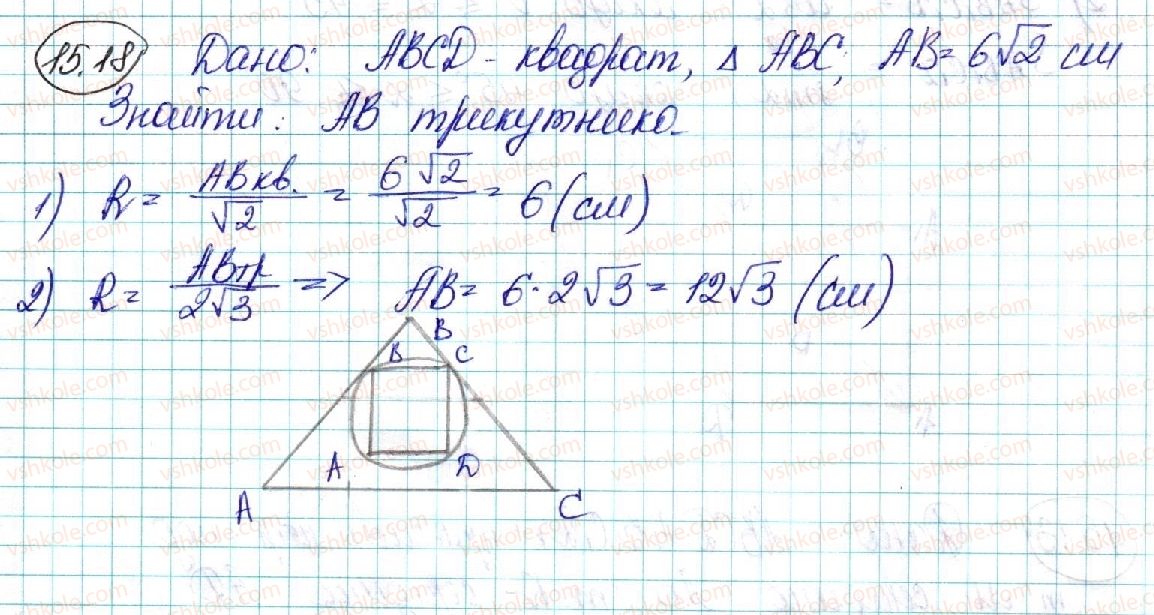 15.18 Дано: ABCD - квадрат, Δ ABC; AB = 6√2 см
Знайти: AB трикутника.
1) R = ABкв./√2 = 6√2/√2 = 6 (см)
2) R = ABтр/2√3 => AB = 6·2√3 = 12√3 (см)
B
B C
A D
A C